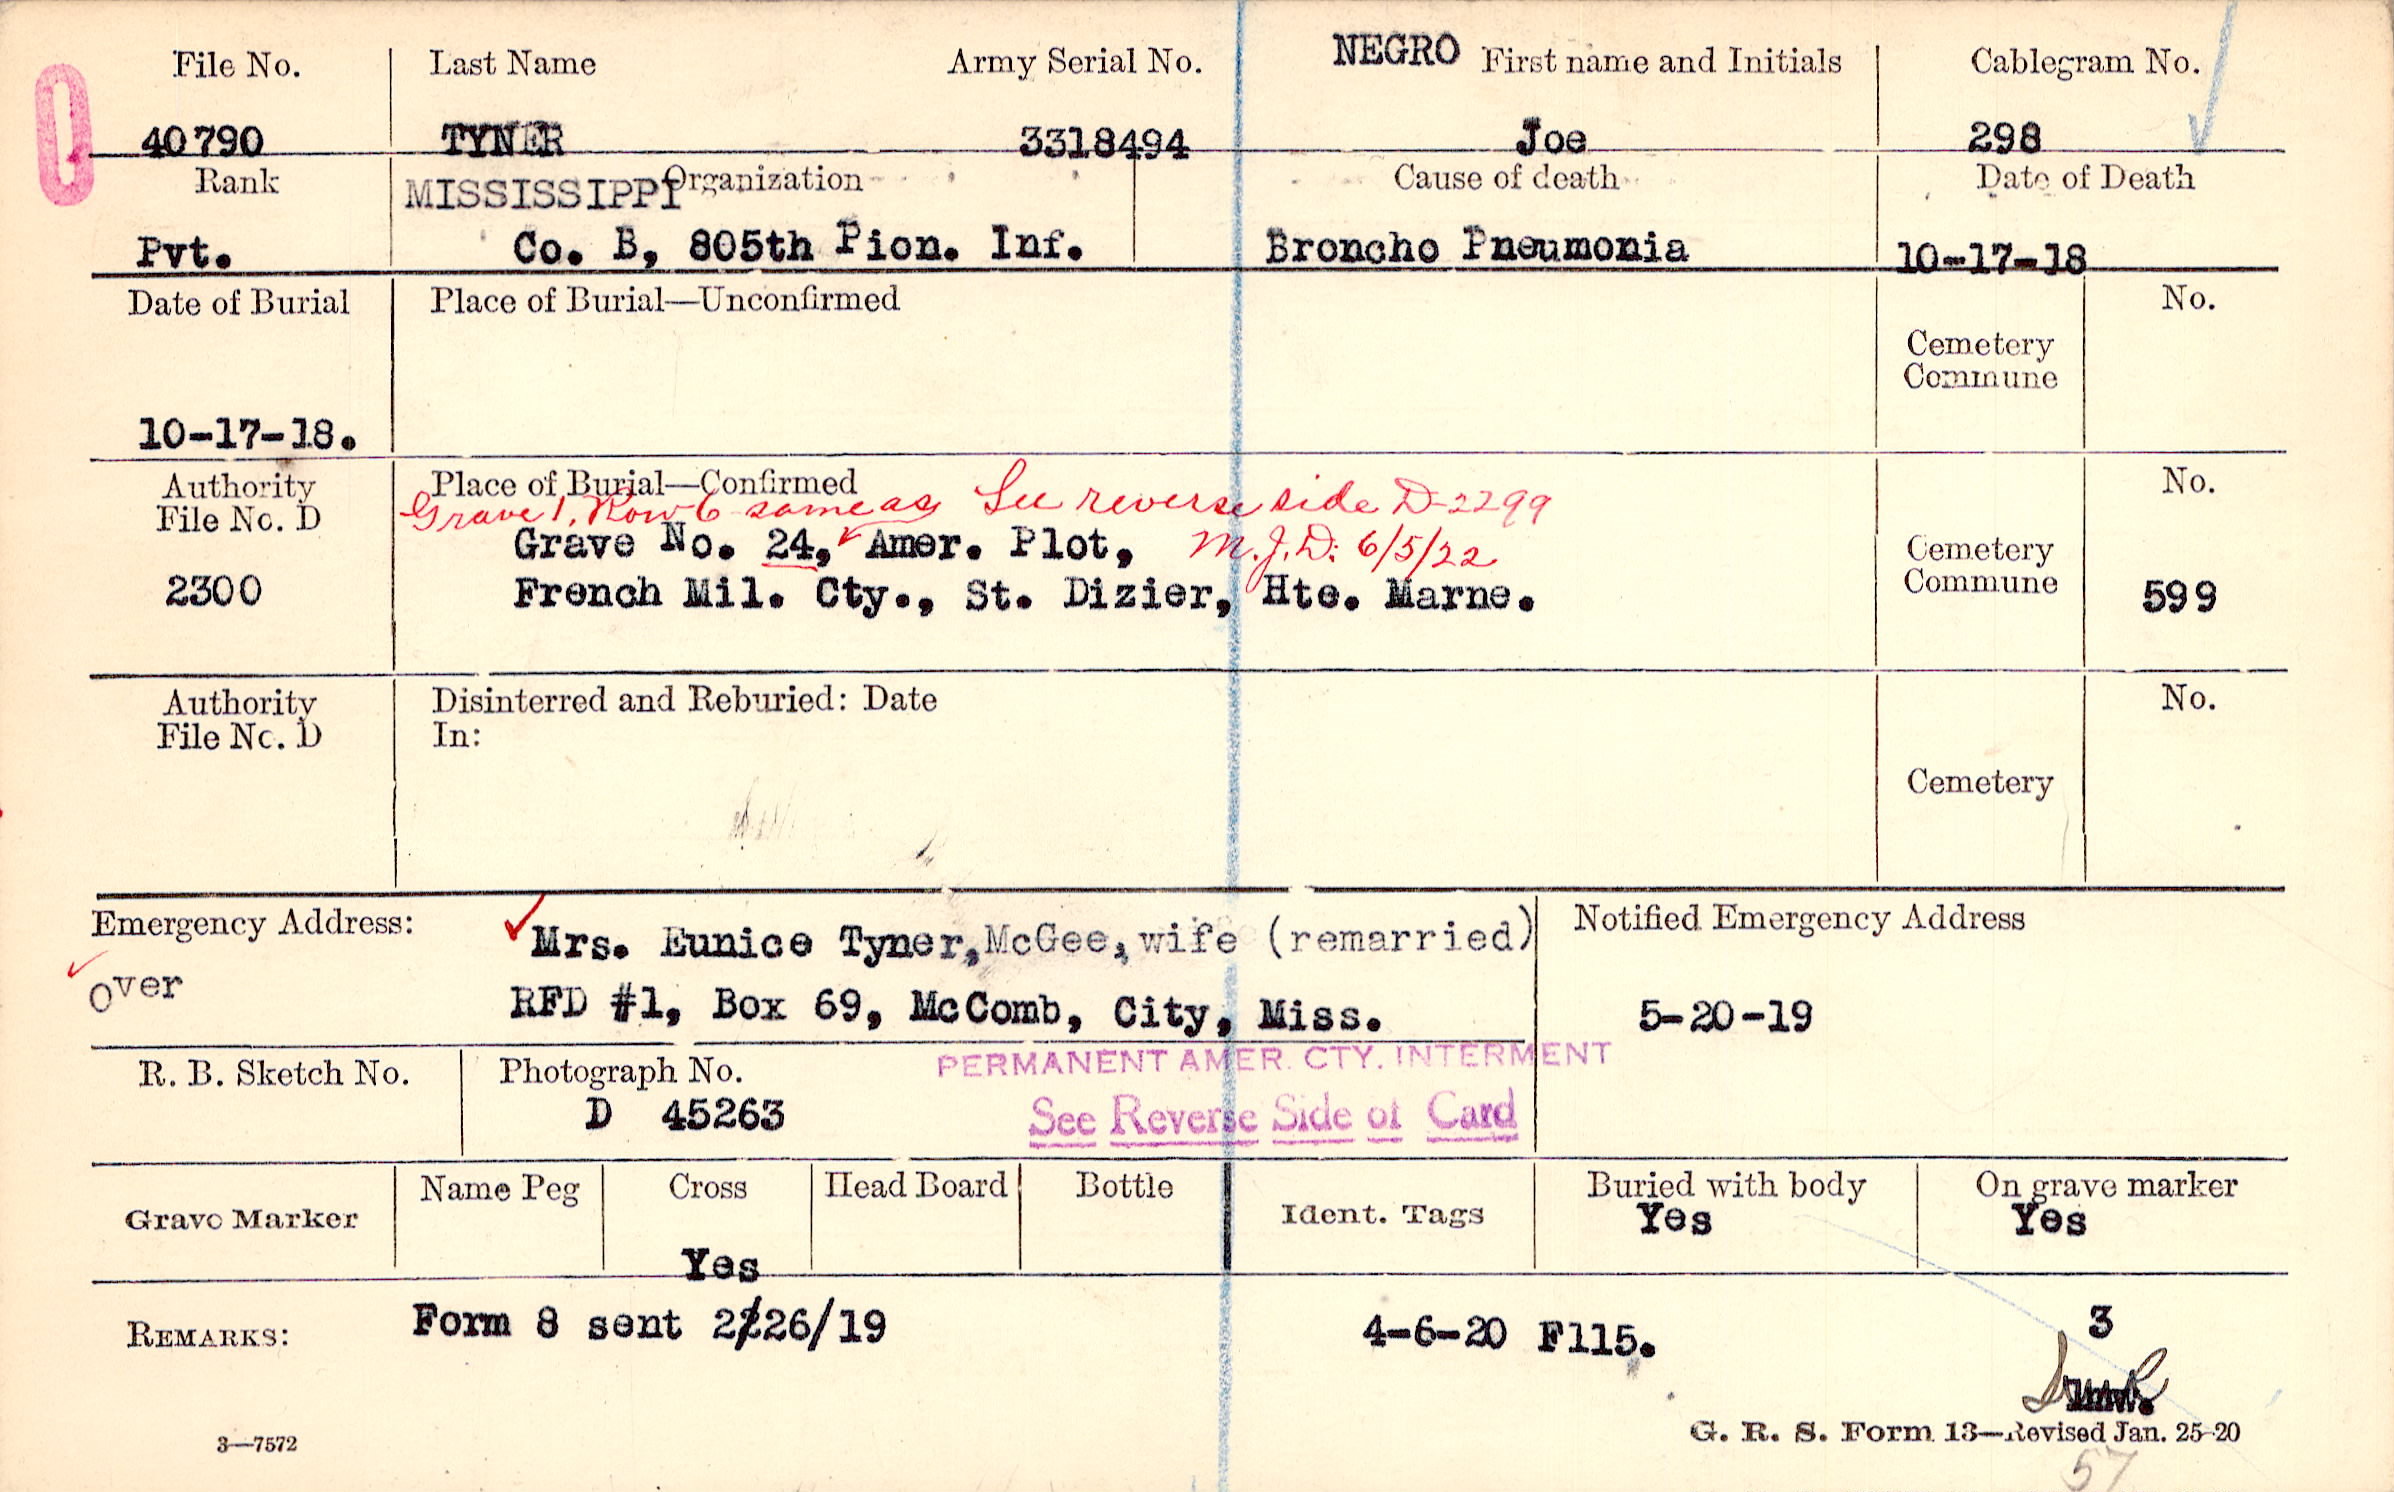 File No. Last Name Army Serial No. NEGRO First name and Initials Cablegram No.
40790 TYNER 3318494 Joe 298
Rank MISSISSIPPI Organization Cause of death Date of Death
Pvt. Co. B, 805th Pion. Inf. Broncho Pneumonia 10-17-18
Date of Burial Place of Burial—Unconfirmed No.
Cemetery
Commune
10-17-18.
Authority Place of Burial—Confirmed No.
File No. D Grave 1, Row 6 same as See reverse side D-2299
Grave No. 24, Amer. Plot, M.J.D. 6/5/22 Cemetery
2300 French Mil. Cty., St. Dizier, Hte. Marne. Commune 599
Authority Disinterred and Reburied: Date No.
File No. D In:
Cemetery
Emergency Address: Mrs. Eunice Tyner, McGee, wife (remarried) Notified Emergency Address
over RFD #1, Box 69, McComb, City, Miss. 5-20-19
R. B. Sketch No. Photograph No. PERMANENT AMER. CTY. INTERMENT
D 45263 See Reverse Side of Card
Grave Marker Name Peg Cross Head Board Bottle Ident. Tags Buried with body On grave marker
Yes Yes Yes
REMARKS: Form 8 sent 2/26/19 4-6-20 F115. 3
3—7572 G. R. S. Form 13—Revised Jan. 25-20
57